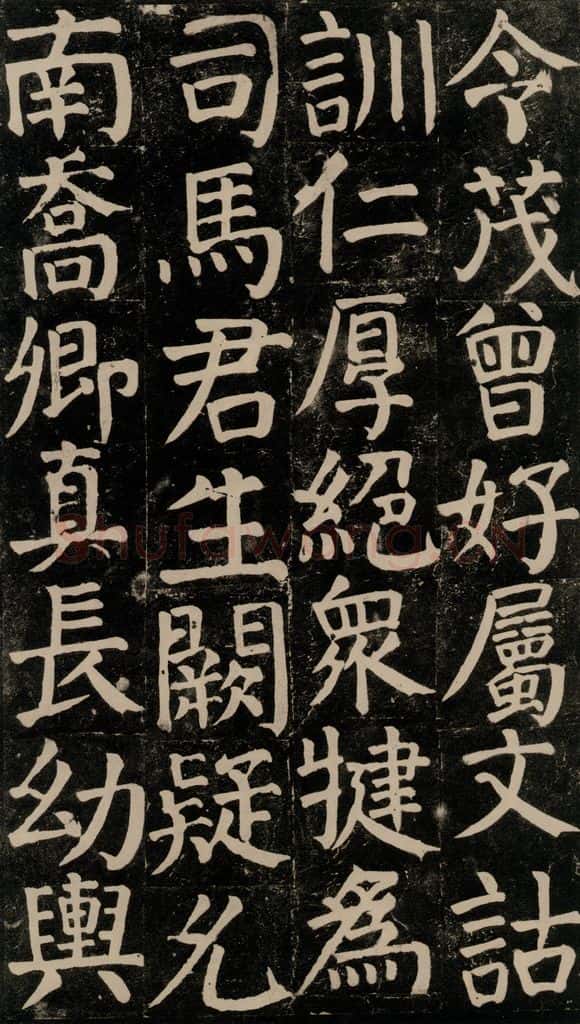 令茂曾好屬文詁
訓仁厚絕衆犍為
司馬君生闕疑允
南喬卿真長幼輿
Shufawang.CN